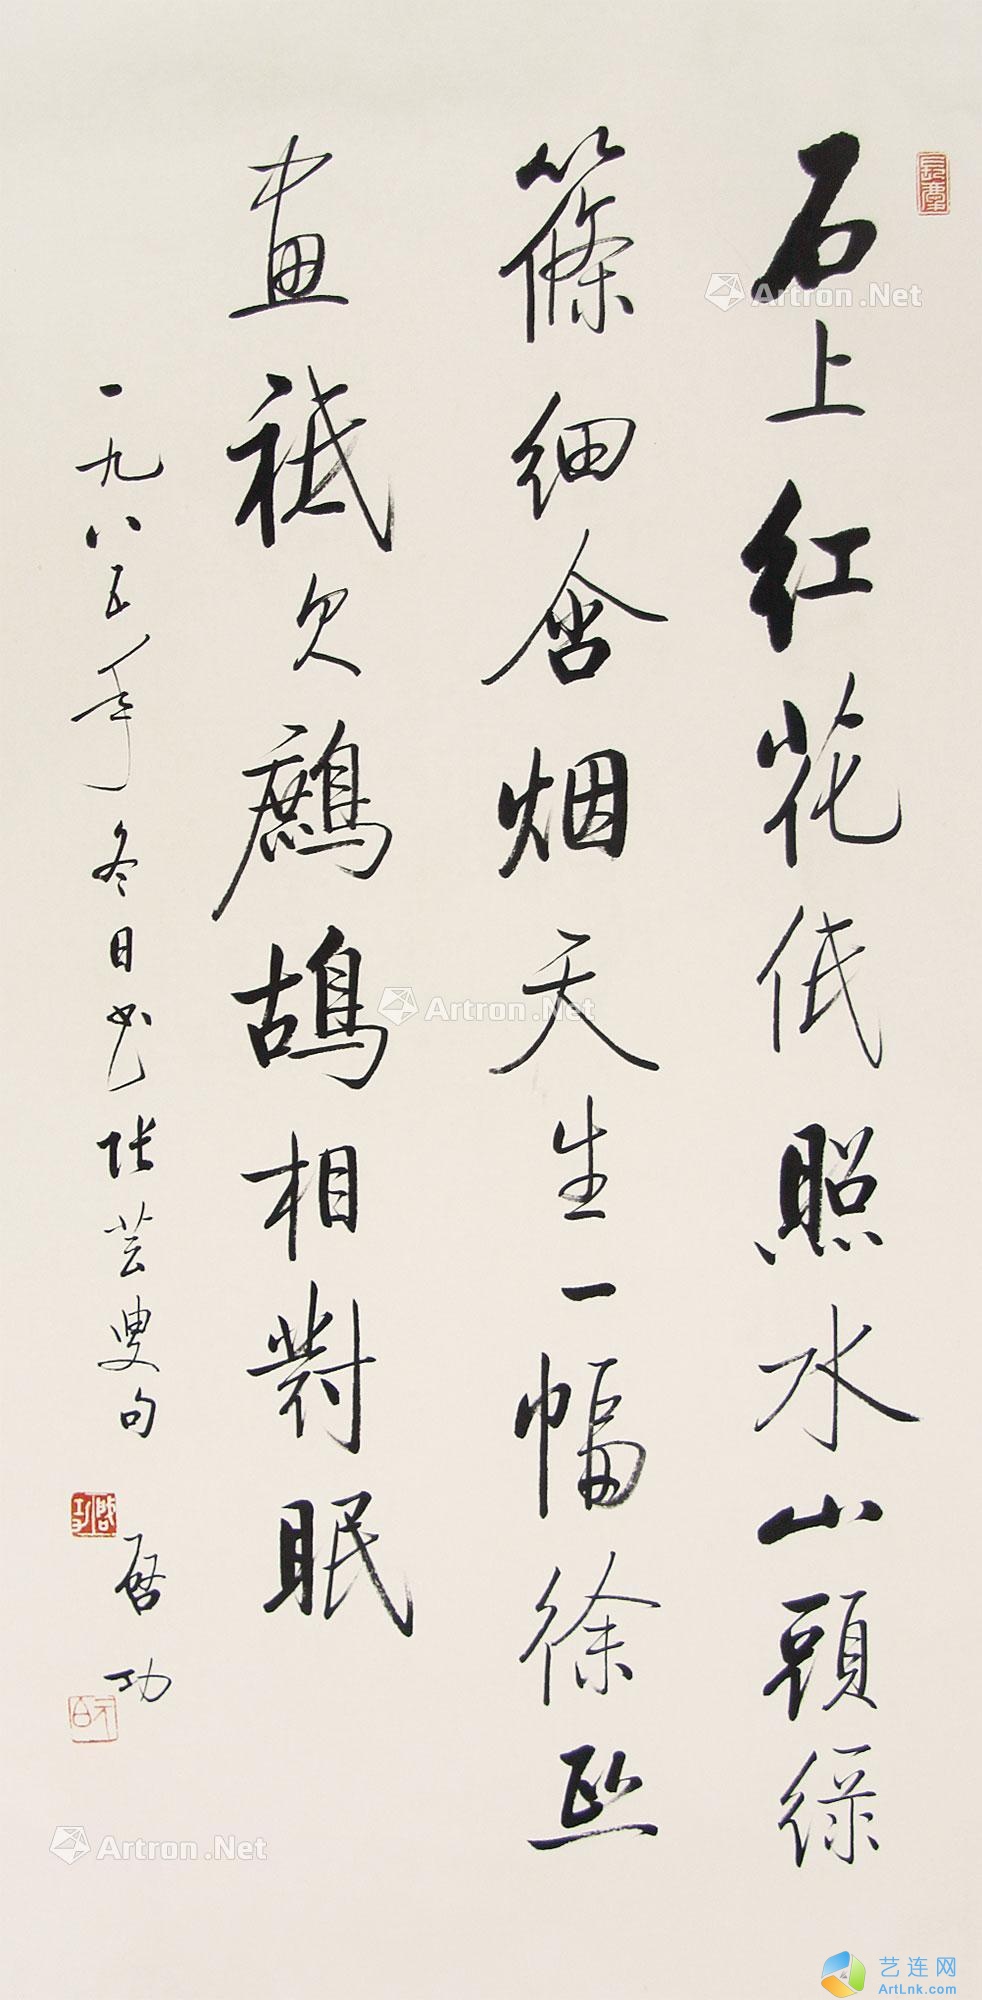 石上红花低照水山頭绿
篠细含烟天生一幅徐熙
畫祗欠鷓鴣相對眠
一九八五年冬日书张芸叟句
启功
Artron.Net
Artron.Net
Artron.Net
艺连网
ArtLnk.com